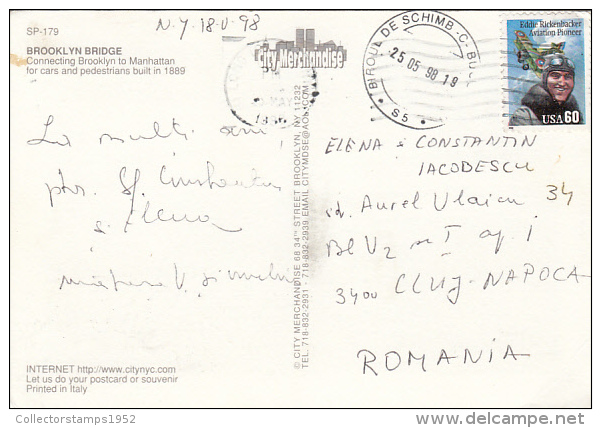 SP-179
BROOKLYN BRIDGE
Connecting Brooklyn to Manhattan
for cars and pedestrians built in 1889
N.Y 18-V-98
City Merchandise
BIROUL DE SCHIMB
25 05 98 18
S5
Eddie Rickenbacker
Aviation Pioneer
USA 60
La multi ani,
ptr. Sf. Constantin
s. Elena
© CITY MERCHANDISE 68 34TH STREET BROOKLYN, NY 11232
TEL. 718-832-2931 718-832-2939 EMAIL CITYMDSE@AOL.COM
ELENA & CONSTANTIN
IACOBESCU
Aurel Vlaicu 34
Bl V2 sc I ap. 1
3400 CLUJ-NAPOCA
ROMANIA
INTERNET http://www.citynyc.com
Let us do your postcard or souvenir
Printed in Italy
Collectorstamps1952
delcampe.net